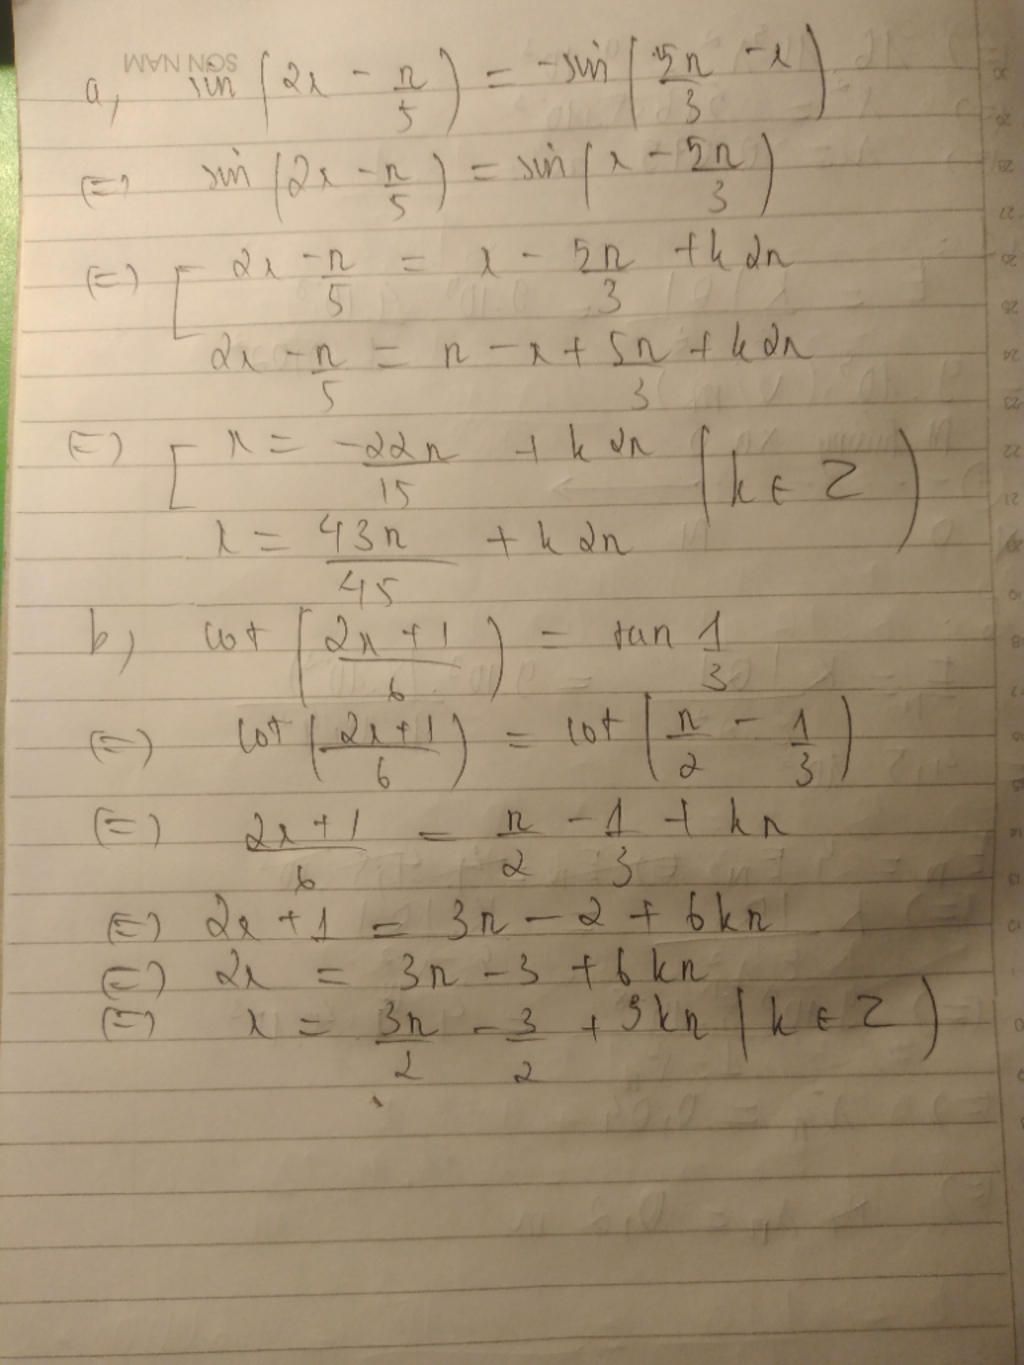 SƠN NAM
a, sin(2x - π/5) = -sin(5π/3 - x)
(=) sin(2x - π/5) = sin(x - 5π/3)
(=) [ 2x - π/5 = x - 5π/3 + k2π
2x - π/5 = π - x + 5π/3 + k2π
(=) [ x = -22π/15 + k2π (k ∈ Z)
x = 43π/45 + k2π
b, cot((2x+1)/6) = tan 1/3
(=) cot((2x+1)/6) = cot(π/2 - 1/3)
(=) (2x+1)/6 = π/2 - 1/3 + kπ
(=) 2x + 1 = 3π - 2 + 6kπ
(=) 2x = 3π - 3 + 6kπ
(=) x = 3π/2 - 3/2 + 3kπ (k ∈ Z)